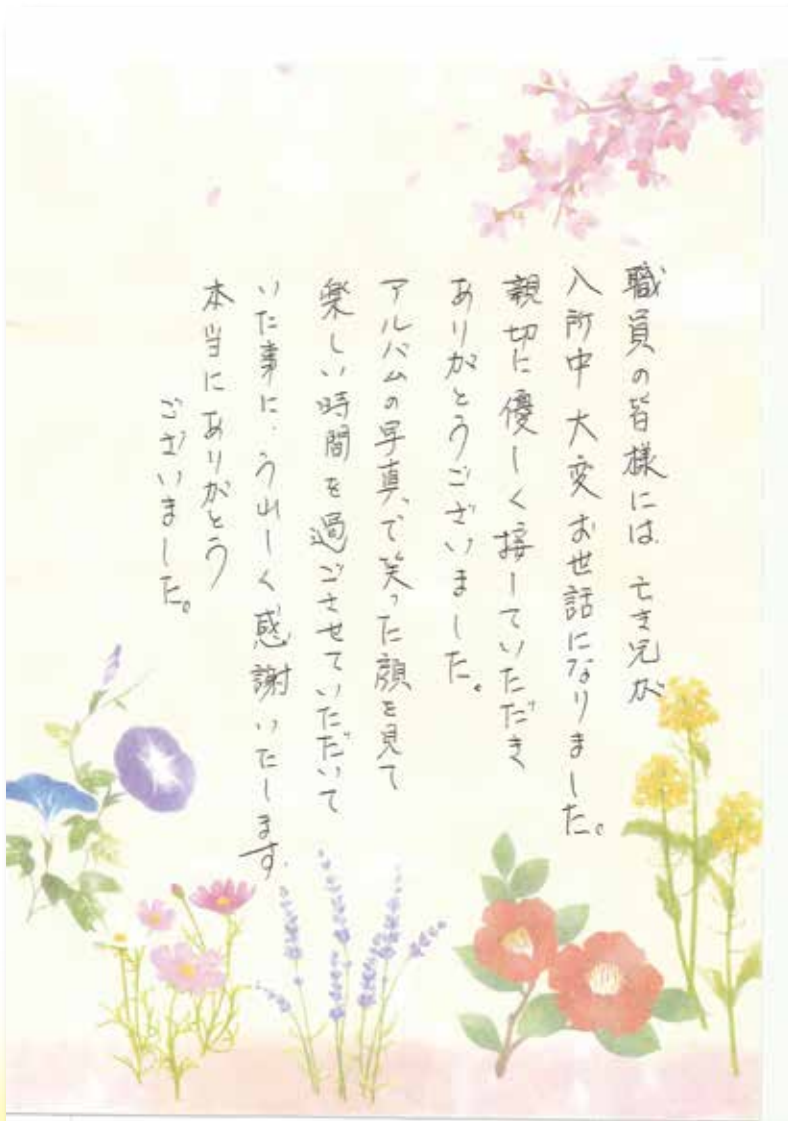 職員の皆様には、亡き兄が
入所中 大変お世話になりました。
親切に優しく接していただき
ありがとうございました。
アルバムの写真で笑った顔を見て
楽しい時間を過ごさせていただいて
いた事に、うれしく感謝いたします。
本当にありがとう
ございました。